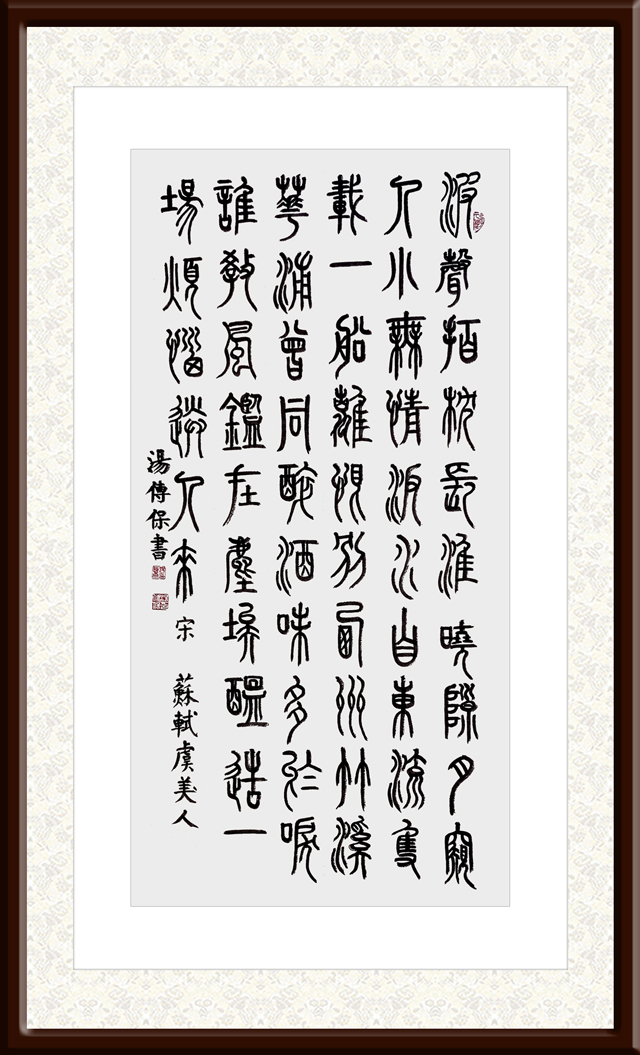 波聲拍枕長淮曉隙月窺
人小無情汳水自東流隻
載一船離恨別西州竹溪
華浦曾同醉酒味多於唳
誰教風鑑在塵埃醞造一
場煩惱送人來 宋 蘇軾虞美人
湯傳保書